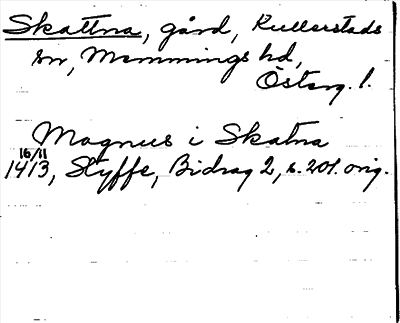 Skattna, gård, Kullerstads
sn, Memmings hd,
Österg. l.
Magnus i Skatna
16/11
1413, Styffe, Bidrag 2, s. 201. orig.